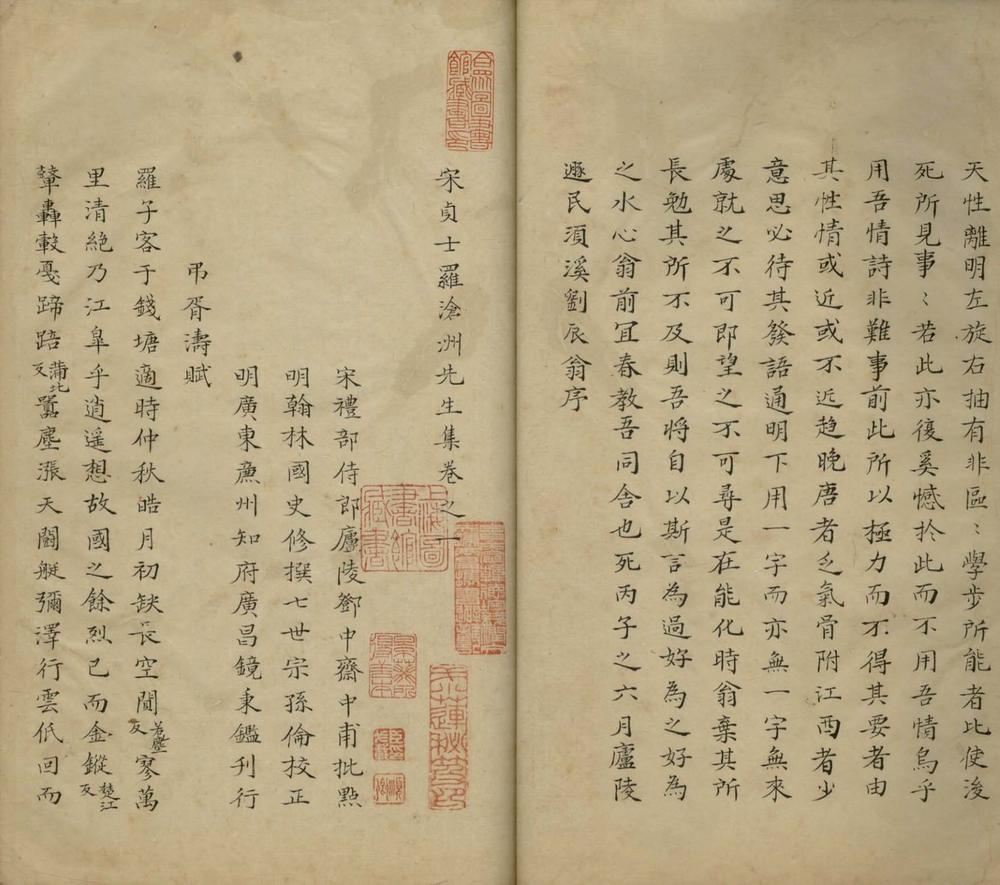 天性離明左旋右抽有非區〻學步所能者比使浚
死所見事〻若此亦復奚憾於此而不用吾情烏乎
用吾情詩非難事前此所以極力而不得其要者由
其性情或近或不近趋晚唐者乏氣骨附江西者少
意思必待其發語通明下用一字而亦無一字無來
處就之不可即望之不可尋是在能化時翁棄其所
長勉其所不及則吾將自以斯言為過好為之好為
之水心翁前冝春教吾同舍也死丙子之六月廬陵
遯民湏溪劉辰翁序
宋貞士羅滄洲先生集卷之一
宋禮部侍郎廬陵鄧中齋中甫批㸃
明翰林國史修撰七世宗孫倫校正
明廣東㢘州知府廣昌鏡秉鑑刊行
弔胥濤賦
羅子客于錢塘適時仲秋皓月初缺長空閴苦壁反寥萬
里清絶乃江臯乎逍遥想故國之餘烈已而金鏦楚江反
鼙轟轂戛蹄踣蒲北反嚚塵漲天鬭艇彌澤行雲低回而
上海圖書館藏書